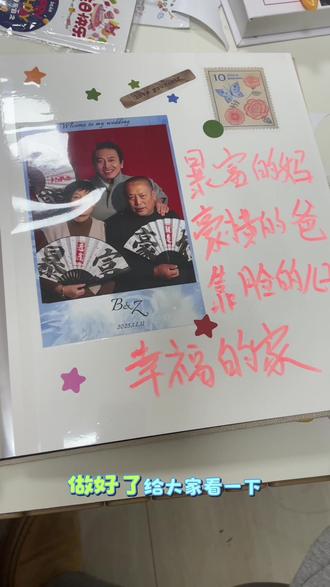 10
Welcome to my wedding
暴富
B&Z
2025.11.11
暴富的妈
豪横的爸
靠脸的儿
幸福的家
做好了给大家看一下